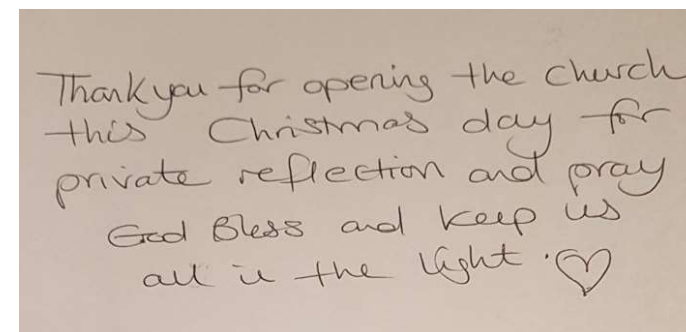 Thank you for opening the church
this Christmas day for
private reflection and pray
God Bless and keep us
all in the light. ♡